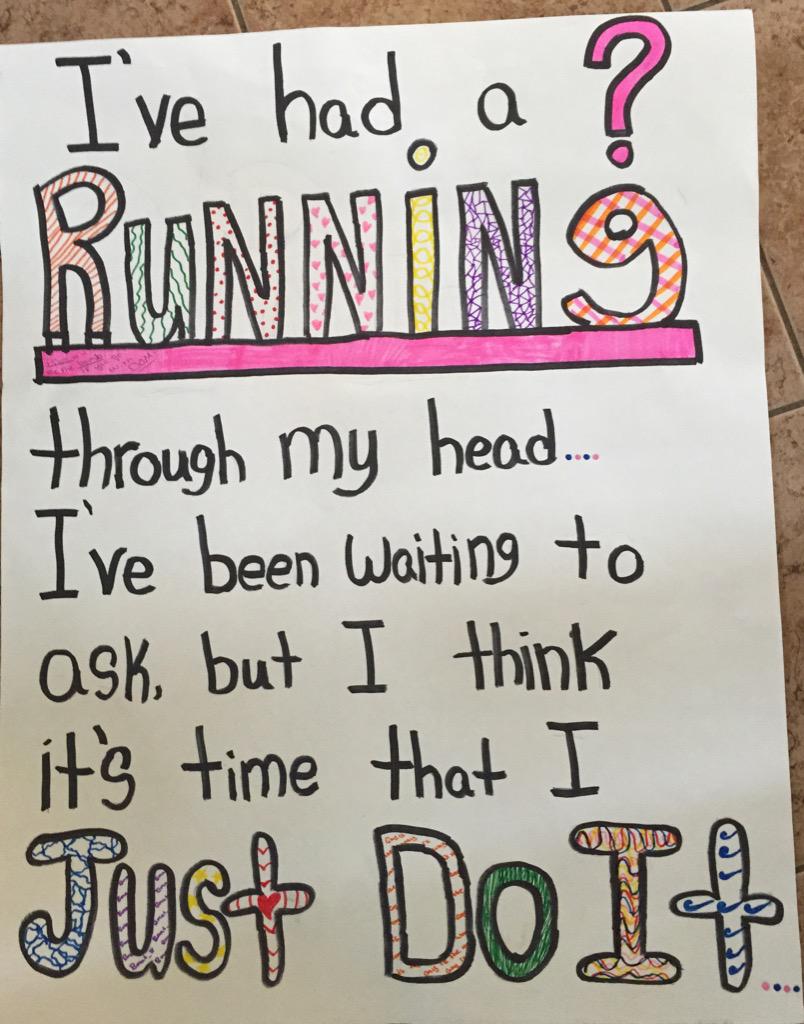 I've had a ?
RUNNiNg
through my head....
I've been waiting to
ask, but I think
it's time that I
Just Do It....